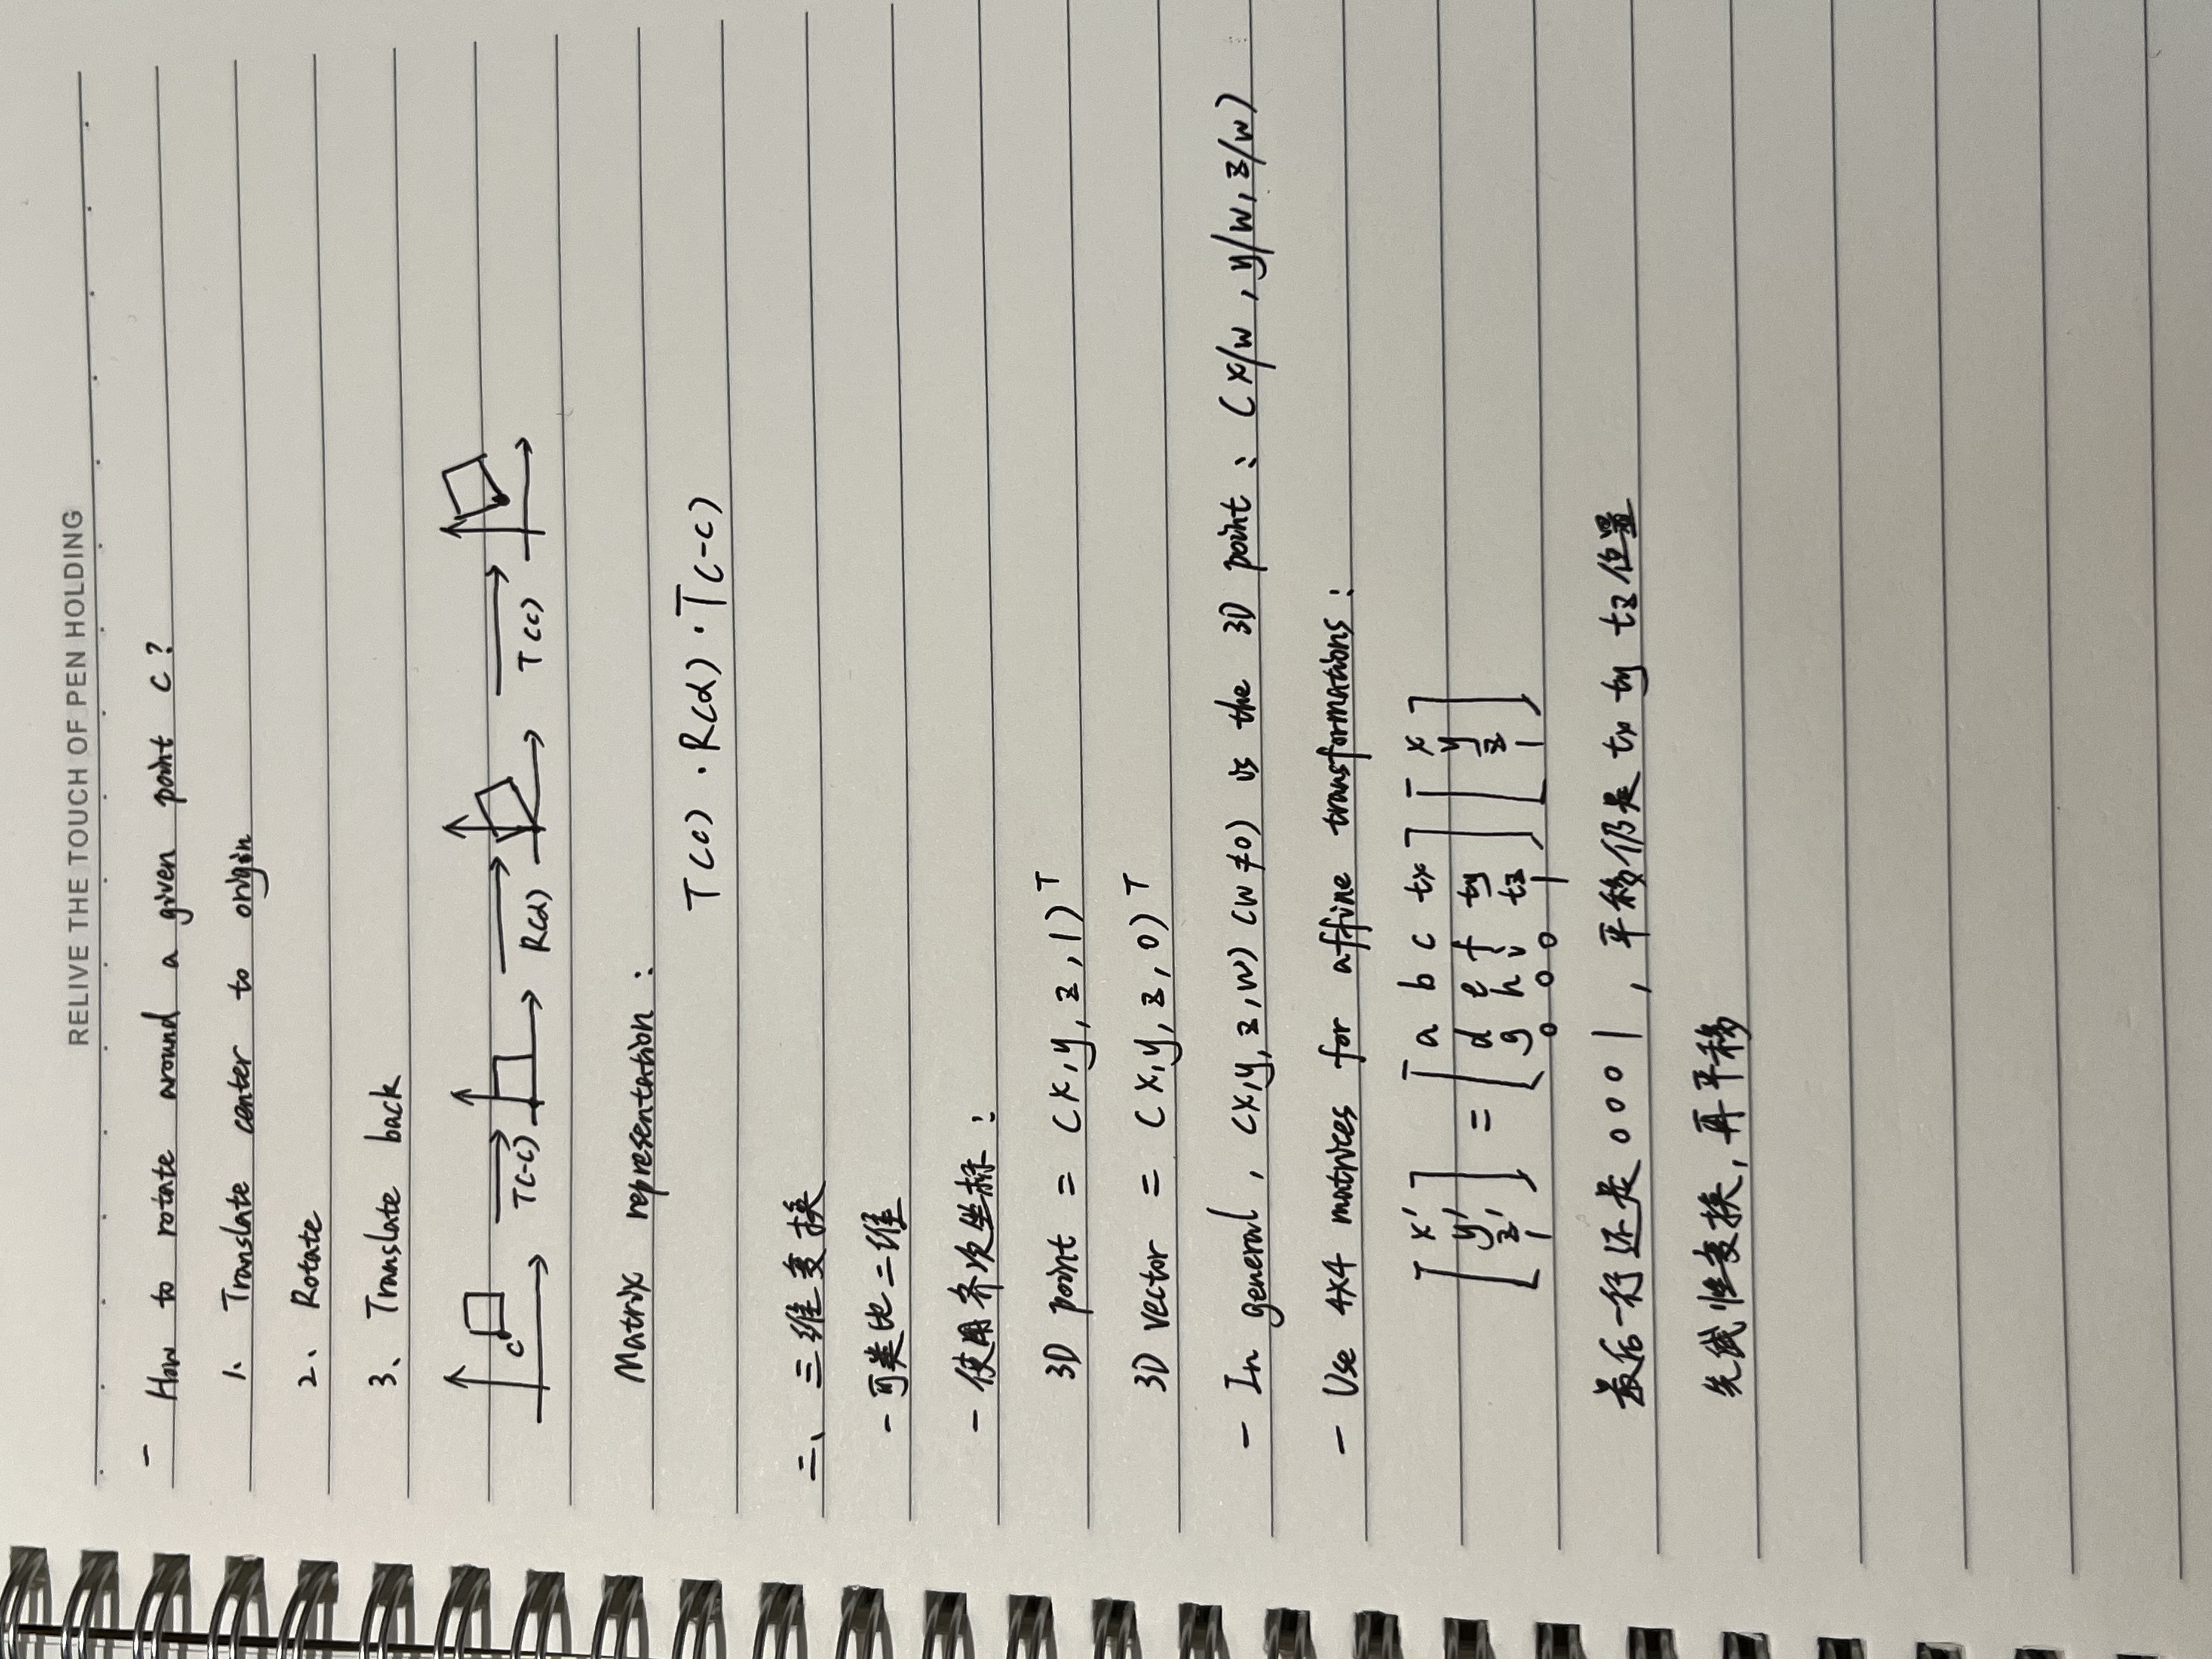 RELIVE THE TOUCH OF PEN HOLDING
- How to rotate around a given point C?
1、 Translate center to origin
2、 Rotate
3、 Translate back
C T(-C) R(α) T(C)
Matrix representation:
T(C) · R(α) · T(-C)
二、三维变换
- 可类比二维
- 使用齐次坐标:
3D point = (x, y, z, 1)ᵀ
3D vector = (x, y, z, 0)ᵀ
- In general, (x, y, z, w) (w ≠ 0) is the 3D point: (x/w, y/w, z/w)
- Use 4x4 matrices for affine transformations:
[x' y' z' 1] = [a b c tx
d e f ty
g h i tz
0 0 0 1] [x y z 1]
最后一行还是 0 0 0 1, 平移仍是 tx ty tz 位置
先线性变换, 再平移